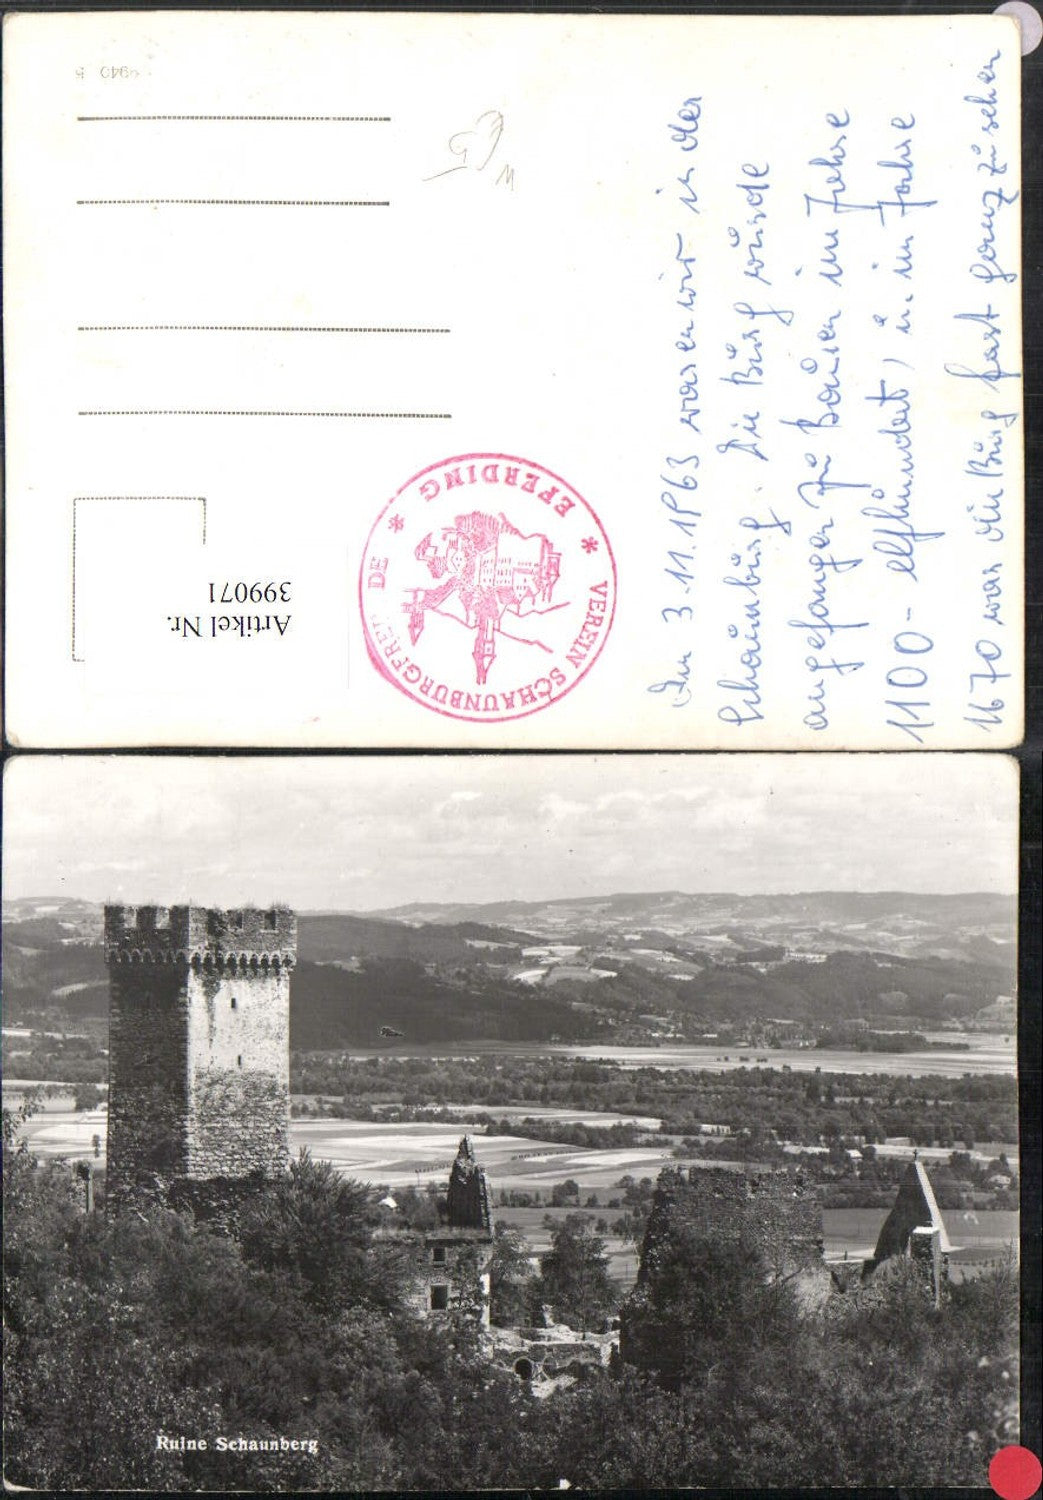 Am 3.11.1963 waren wir in der
Schaunburg. Die Burg wurde
angefangen zu Bauen im Jahre
1100 - elfhundert, u. im Jahre
1670 war die Burg fast ganz zu sehen
VEREIN SCHAUNBURGFREUNDE
* EFERDING *
Artikel Nr.
399071
Ruine Schaunberg